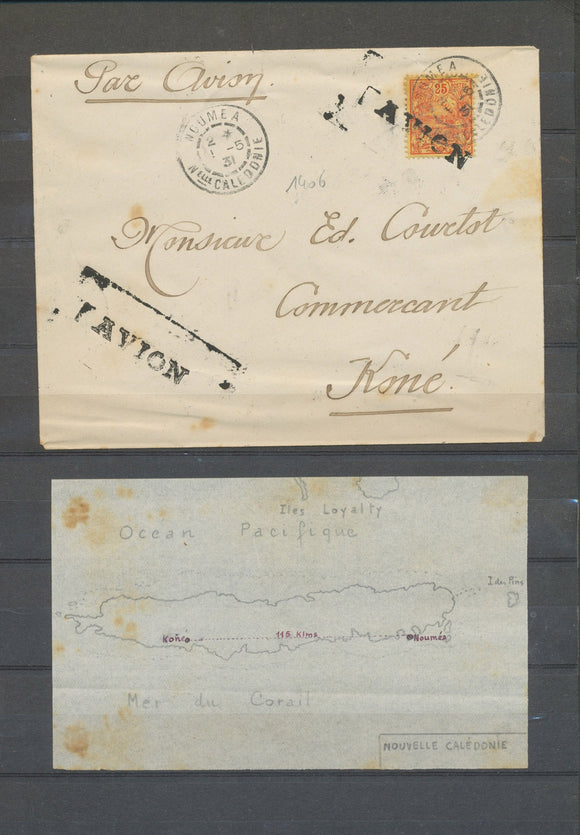 Par Avion
NOUMEA
2 - 5
31
Nlle CALEDONIE
25
MEA
AVION
1406
Monsieur Ed. Courtot
Commercant
Koné.
AVION
Iles Loyalty
Ocean Pacifique
I des Pins
Koné 115 Klms Nouméa
Mer du Corail
NOUVELLE CALÉDONIE